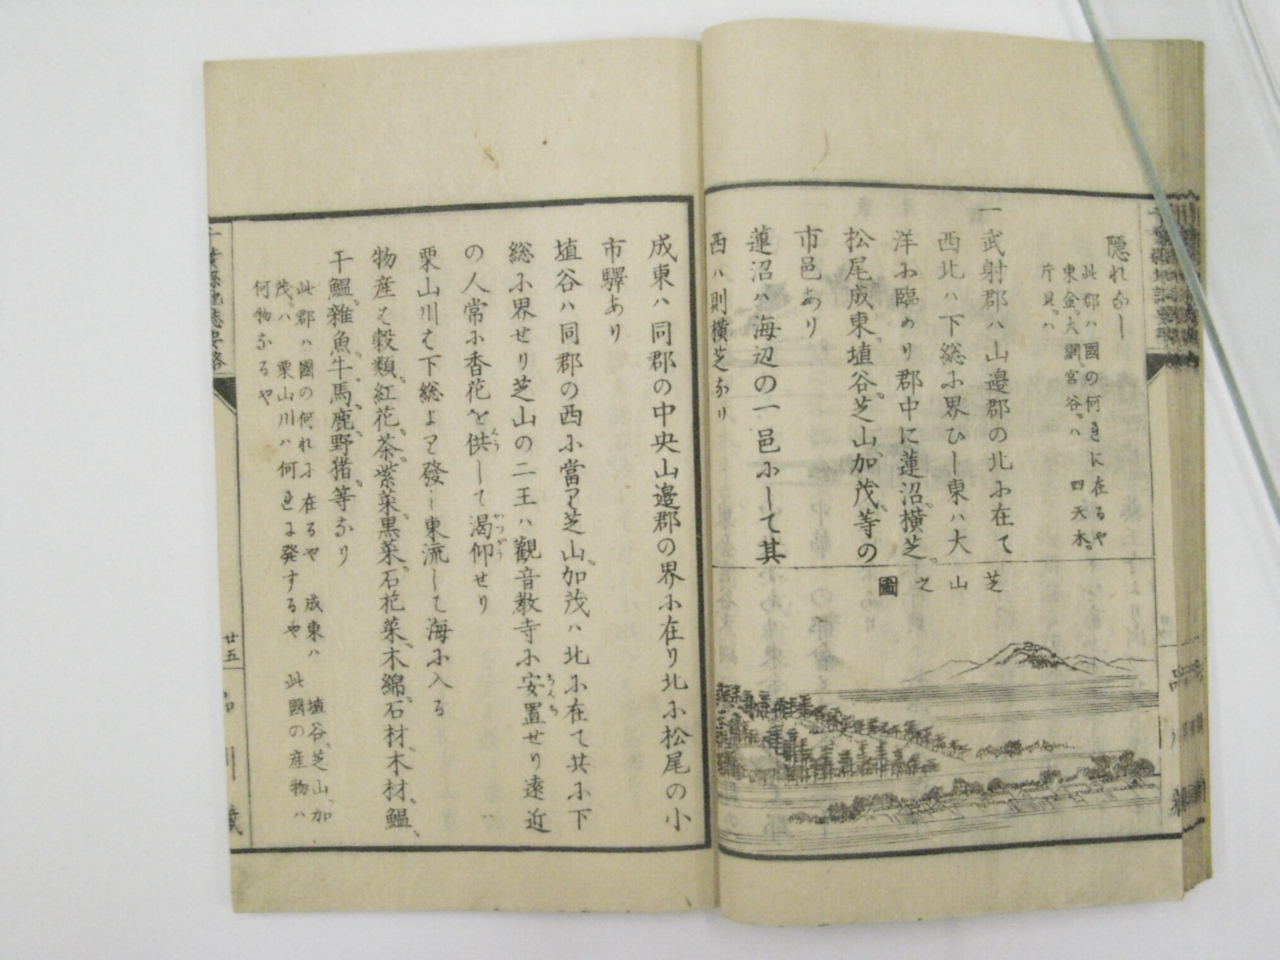 隠れなし
此郡ハ國の何れに在るや
東金、大網、宮谷、ハ 四天木、
片貝、ハ
一武射郡ハ山邉郡の北小在て
西北ハ下総小界ひし東ハ大
洋小臨めり郡中に蓮沼、横芝、
松尾成東、埴谷、芝山加茂、等の
市邑あり
蓮沼ハ海辺の一邑小して其
西ハ則横芝なり
芝山之圖
成東ハ同郡の中央山邉郡の界小在り北小松尾の小
市驛あり
埴谷ハ同郡の西小當り芝山、加茂ハ北小在て共小下
総小界せり芝山の二王ハ觀音教寺小安置せり遠近
の人常小香花を供して渇仰せり
栗山川も下総より發し東流して海小入る
物産は穀類、紅花、茶、紫菜、黒菜、石花菜、木綿、石材、木材、鰮、
干鰮、雜魚、牛、馬、鹿、野猪、等なり
此郡ハ國の何れ小在るや 成東ハ 埴谷、芝山、加
茂、ハ 栗山川ハ何れより発するや 此國の産物ハ
何物なるや
千葉縣地誌畧
廿五